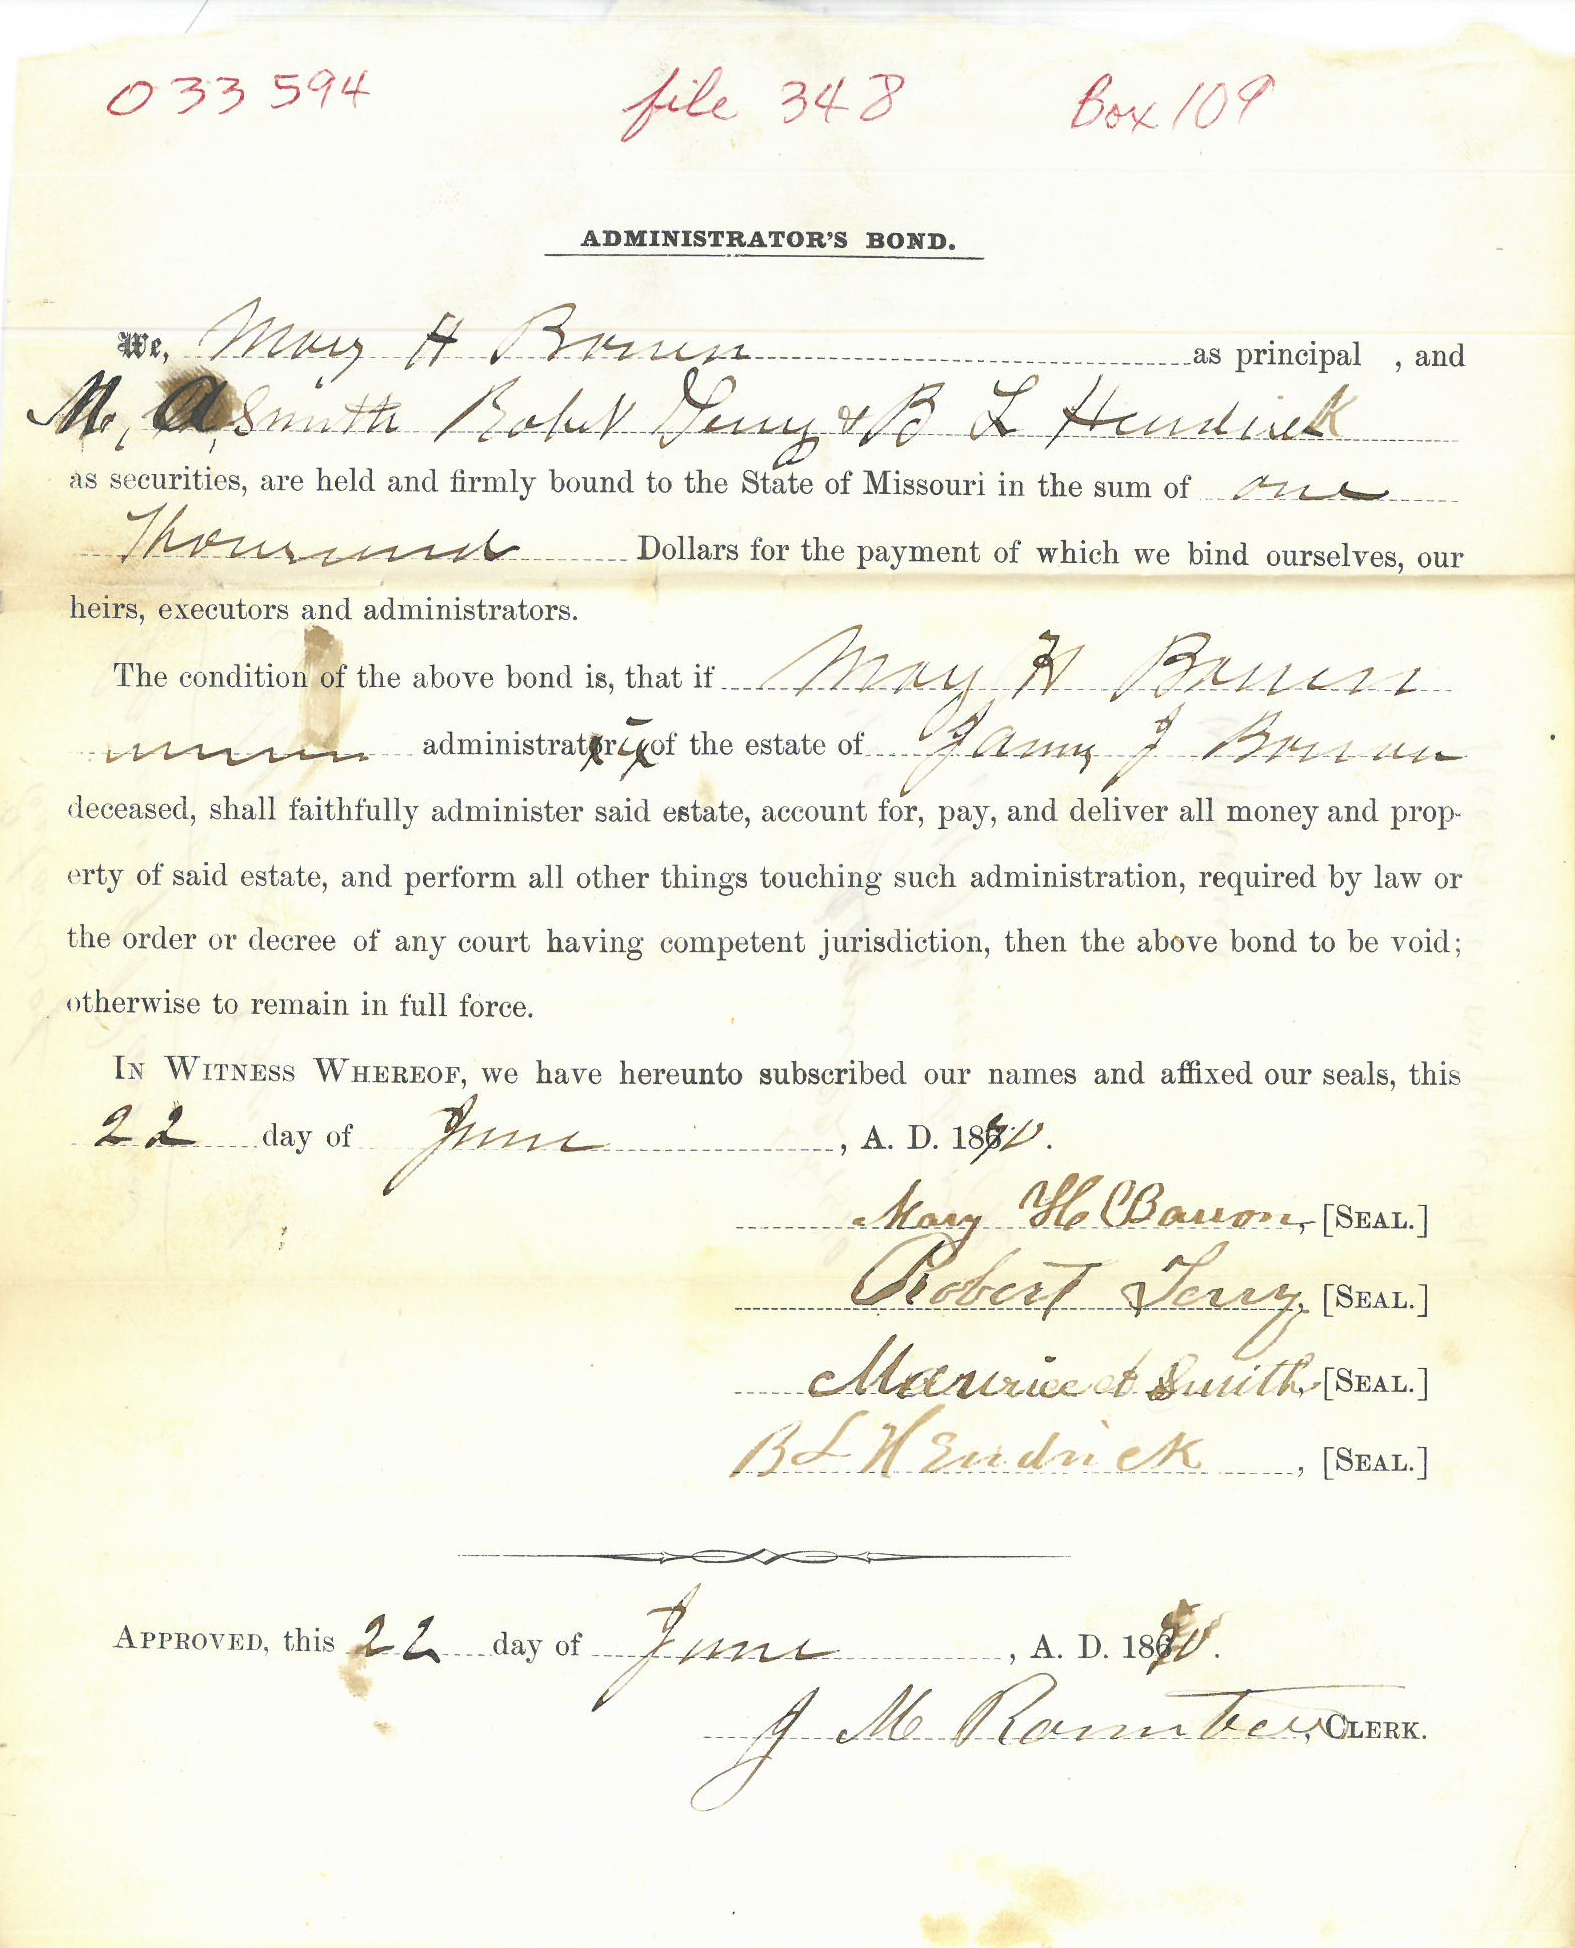 033594 file 348 Box 109
ADMINISTRATOR'S BOND.
We, Mary H Barron as principal , and
M, A Smith Robert Terry & B L Hendrick
as securities, are held and firmly bound to the State of Missouri in the sum of one
Thousand Dollars for the payment of which we bind ourselves, our
heirs, executors and administrators.
The condition of the above bond is, that if Mary H Barron
administratrix of the estate of James J Barron
deceased, shall faithfully administer said estate, account for, pay, and deliver all money and prop-
erty of said estate, and perform all other things touching such administration, required by law or
the order or decree of any court having competent jurisdiction, then the above bond to be void;
otherwise to remain in full force.
IN WITNESS WHEREOF, we have hereunto subscribed our names and affixed our seals, this
22 day of June , A. D. 1870.
Mary H Barron, [SEAL.]
Robert Terry, [SEAL.]
Maurice A Smith, [SEAL.]
B L HEndrick , [SEAL.]
APPROVED, this 22 day of June , A. D. 1870.
J M , CLERK.